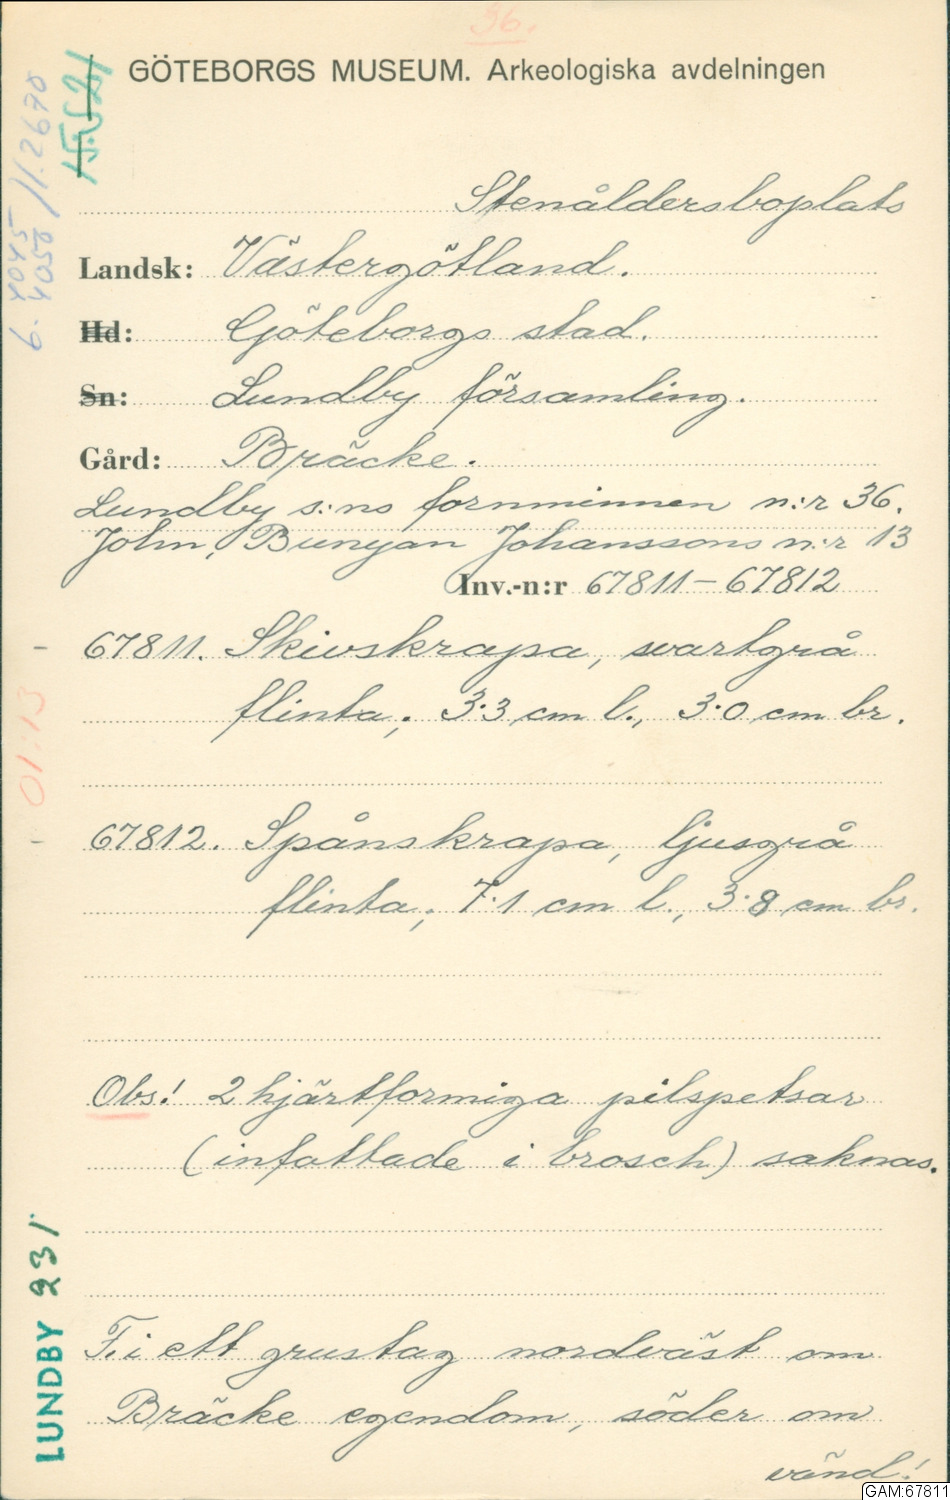 36.
GÖTEBORGS MUSEUM. Arkeologiska avdelningen
Stenåldersboplats
Landsk: Västergötland.
Hd: Göteborgs stad.
Sn: Lundby församling.
Gård: Bräcke.
Lundby s:ns fornminnen n:r 36.
John, Bunyan Johanssons n:r 13
Inv.-n:r 67811–67812
67811. Skivskrapa, svartgrå
flinta; 3.3 cm l., 3.0 cm br.
67812. Spånskrapa, ljusgrå
flinta; 7.1 cm l., 3.8 cm br.
Obs! 2 hjärtformiga pilspetsar
(infattade i brosch) saknas.
F. i ett grustag nordväst om
Bräcke egendom, söder om
vänd!
LUNDBY 231
01:13
GAM:67811